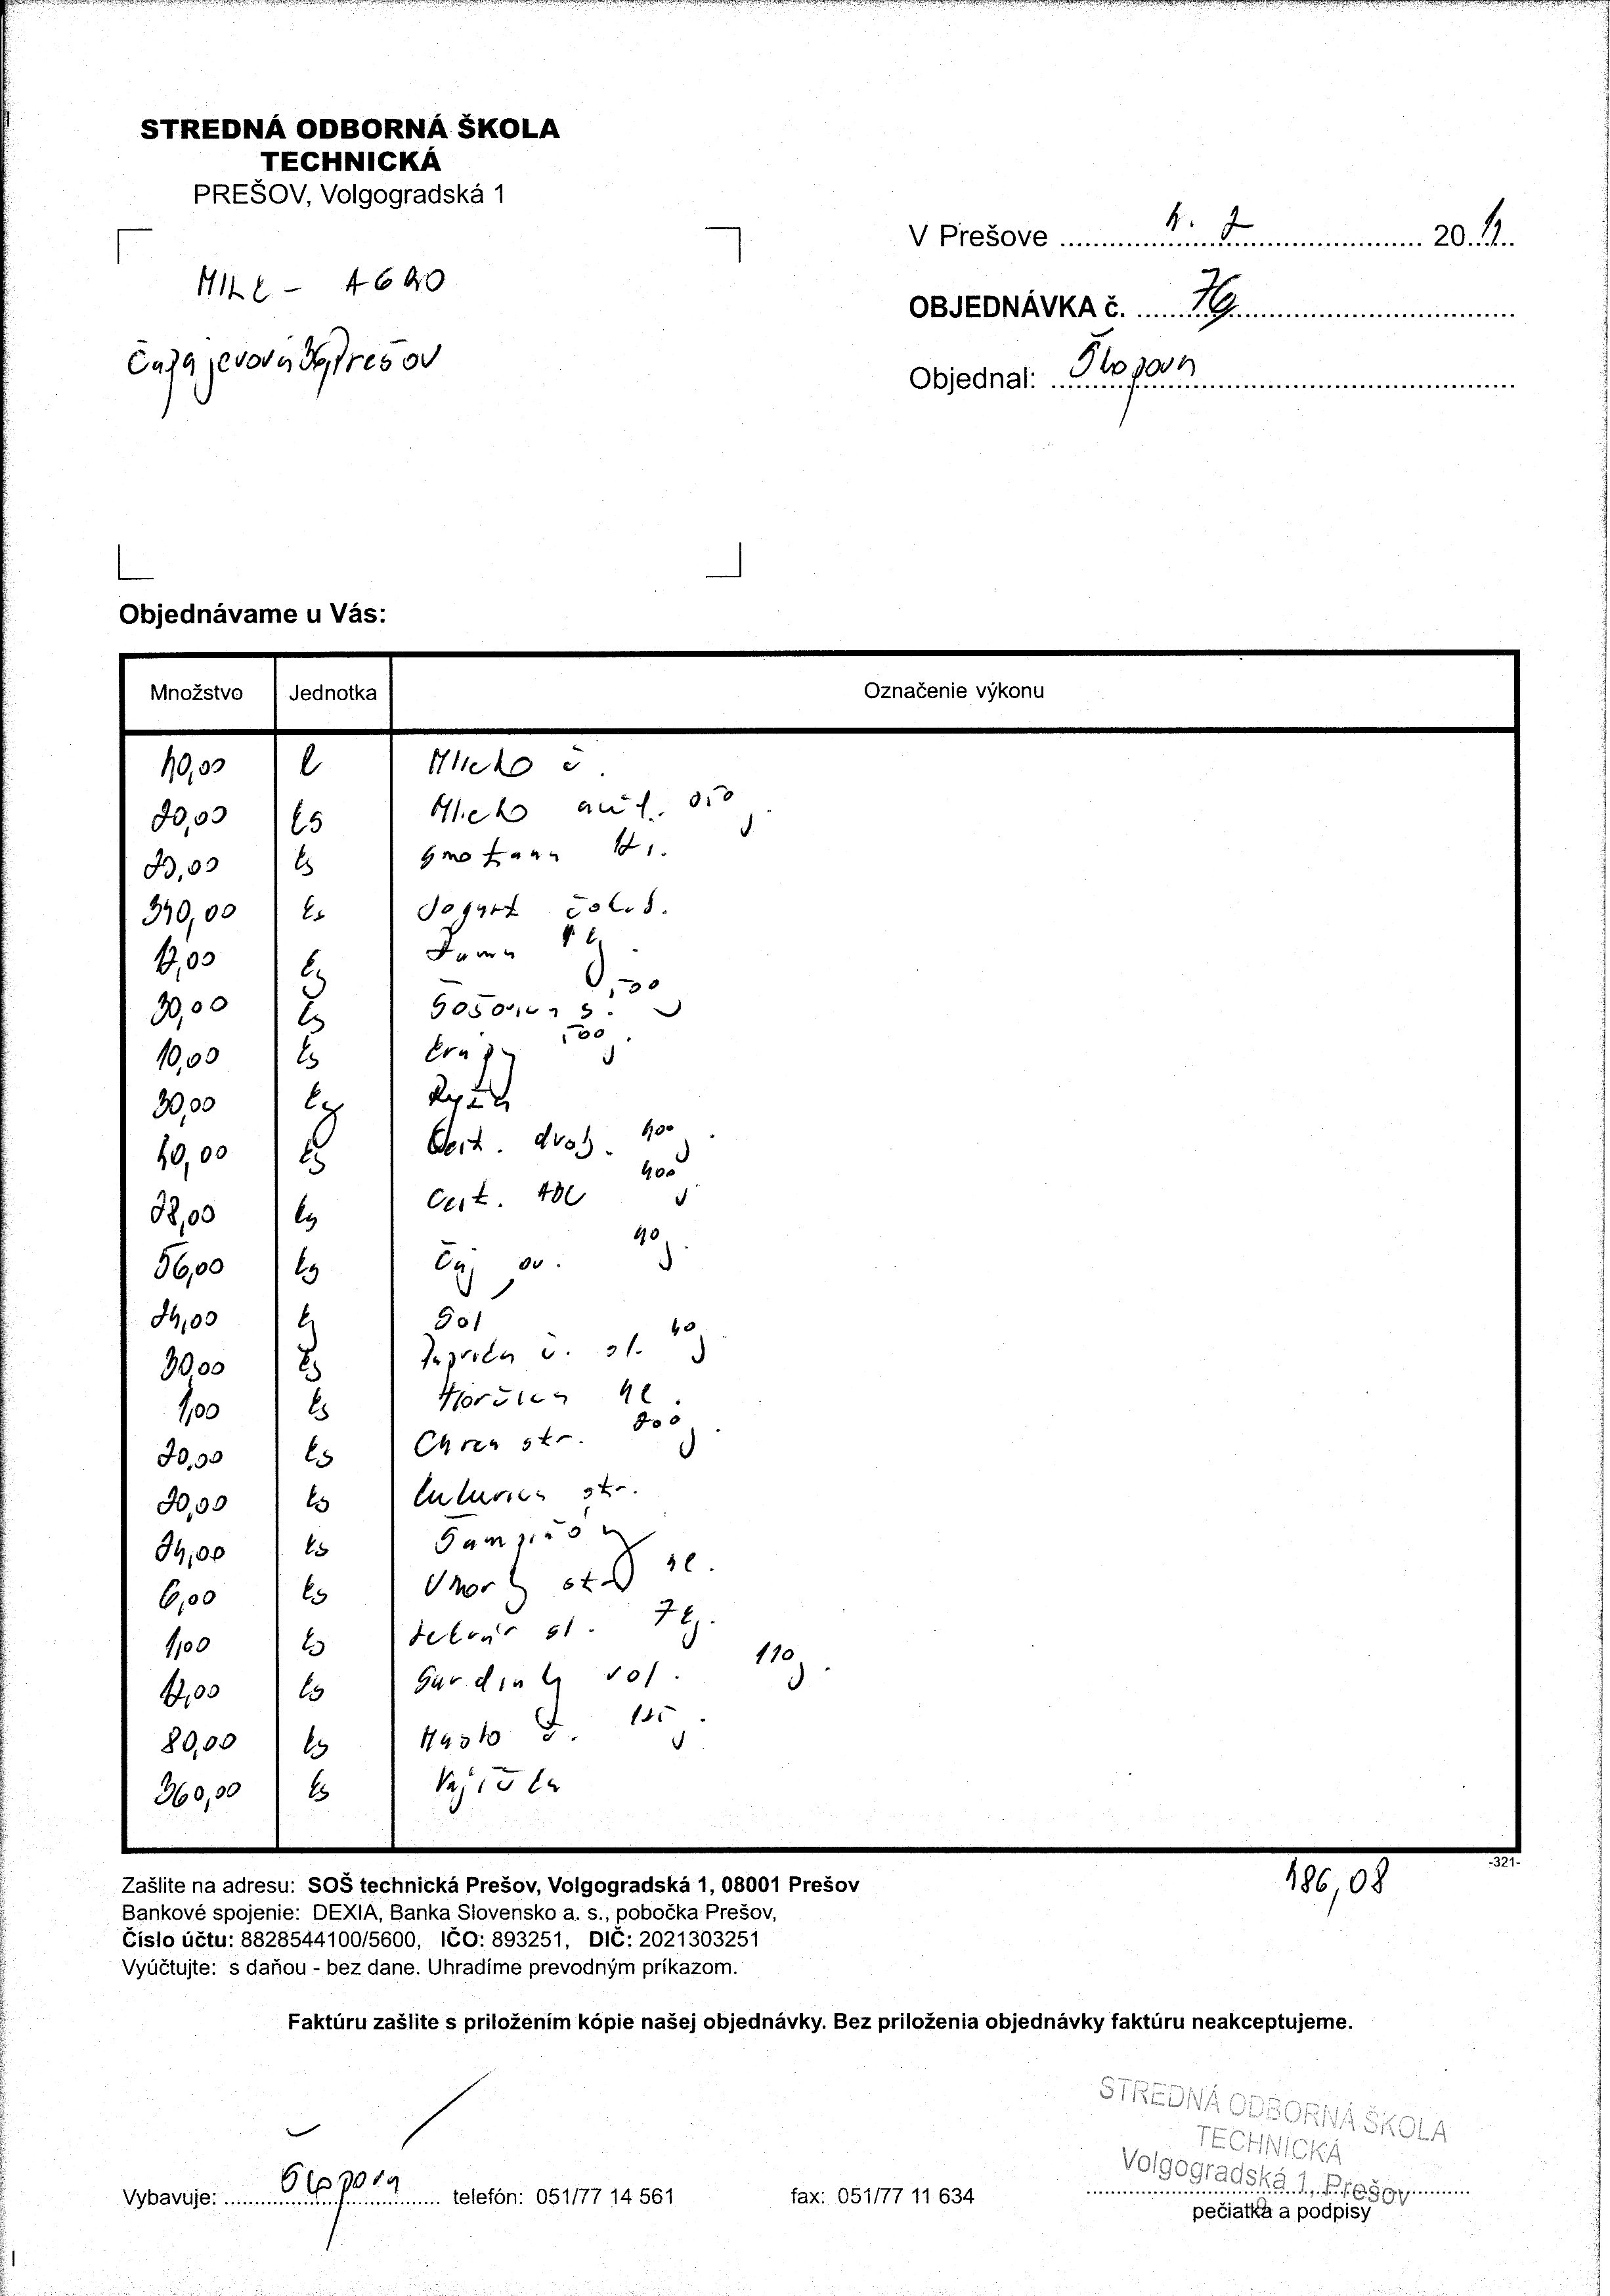 STREDNÁ ODBORNÁ ŠKOLA
TECHNICKÁ
PREŠOV, Volgogradská 1
V Prešove
20
MILK - AGRO
OBJEDNÁVKA č. 76
Čapajevova 36, Prešov
Objednal:
Objednávame u Vás:
Množstvo Jednotka Označenie výkonu
40,00 l Mlieko č.
20,00 ks Mlieko
20,00 ks Smotana
ks Jogurt čokol.
12,00 kg
30,00 ks Šošovica s. 500 g
10,00 ks Krúpy 500 g.
30,00 kg Ryža
40,00 ks Cest. drob. 400 g.
28,00 ks Cest. ABC 400 g
56,00 ks Čaj ov. 40 g.
24,00 kg Sol
30,00 ks Paprika č. sl. 40 g
1,00 ks Horčica
20,00 ks Chren str. 200 g.
20,00 ks Kukurica str.
24,00 ks Šampióny
6,00 ks Uhorky
1,00 ks Lekvár sl. 7 kg.
12,00 ks Sardinky vol. 110 g.
80,00 ks Maslo č. 125 g.
360,00 ks Vajíčka
-321-
186,08
Zašlite na adresu: SOŠ technická Prešov, Volgogradská 1, 08001 Prešov
Bankové spojenie: DEXIA, Banka Slovensko a. s., pobočka Prešov,
Číslo účtu: 8828544100/5600, IČO: 893251, DIČ: 2021303251
Vyúčtujte: s daňou - bez dane. Uhradíme prevodným príkazom.
Faktúru zašlite s priložením kópie našej objednávky. Bez priloženia objednávky faktúru neakceptujeme.
STREDNÁ ODBORNÁ ŠKOLA
TECHNICKÁ
Volgogradská 1, Prešov
Vybavuje: telefón: 051/77 14 561 fax: 051/77 11 634
pečiatka a podpisy